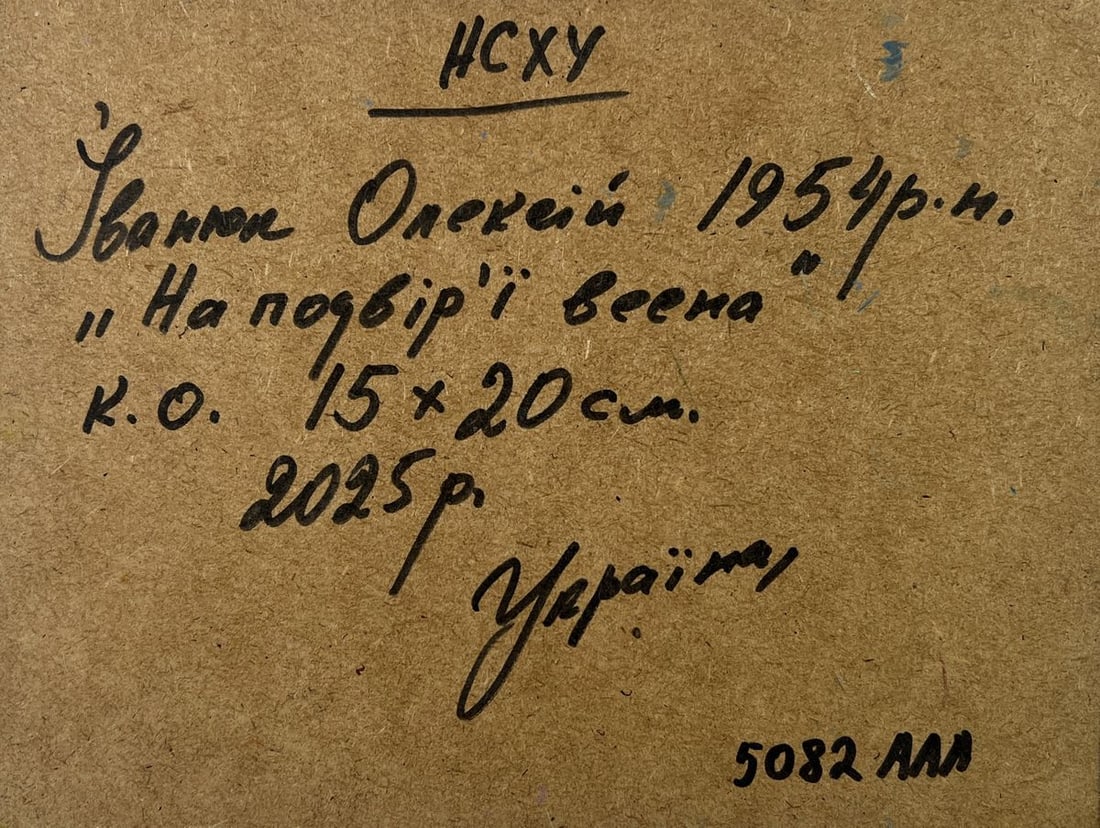 НСХУ
Іванюк Олексій 1954 р.н.
„На подвір'ї весна"
к.о. 15×20 см.
2025 р.
Україна,
5082 ААА